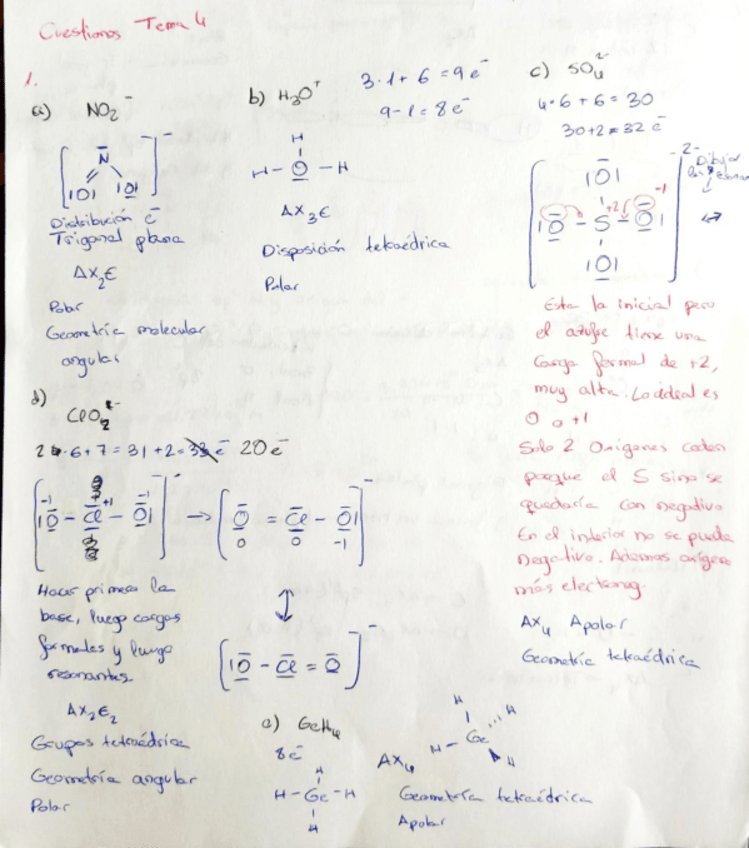 Cuestiones Tema 4
1.
a) NO₂⁻
[ N̄
|O| |O| ]⁻
Distribución e⁻
Trigonal plana
AX₂E
Polar
Geometría molecular
angular
b) H₃O⁺
3·1 + 6 = 9 e⁻
9 - 1 = 8 e⁻
H
H - O - H
AX₃E
Disposición tetraédrica
Polar
c) SO₄²⁻
4·6 + 6 = 30
30 + 2 = 32 e⁻
[ |O|
|O - S - O|
|O| ]²⁻
+2
-1
Dibujar
Esta la inicial pero
el azufre tiene una
carga formal de +2,
muy alta. Lo ideal es
0 o +1
Solo 2 Oxígenos ceden
porque el S sino se
quedaría con negativo
En el interior no se puede
negativo. Ademas oxígeno
más electroneg.
AX₄ Apolar
Geometría tetraédrica
d) ClO₂⁻
2·6 + 7 = 31 + 2 = 33 e⁻ 20 e⁻
-1 +1 -1
[ |O - Cl - O| ]⁻ → [ O = Cl - O| ]⁻
0 0 -1
↕
[ |O - Cl = O ]⁻
Hacer primero la
base, luego cargas
formales y luego
resonantes.
AX₂E₂
Grupos tetraédrica
Geometría angular
Polar
e) GeH₄
8 e⁻
H
H - Ge - H
H
AX₄
H
H - Ge H
H
Geometría tetraédrica
Apolar